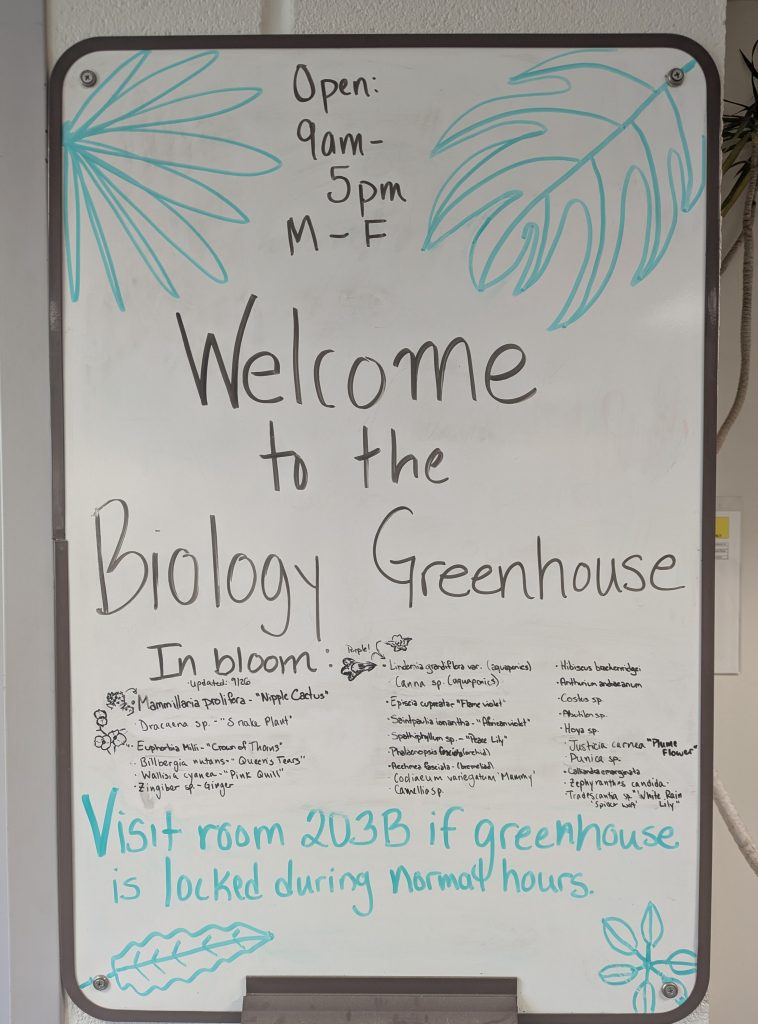 Open:
9am-
5pm
M - F
Welcome
to the
Biology Greenhouse
In bloom:
updated: 9/26
Mammillaria prolifera - "Nipple Cactus"
· Dracaena sp. - "Snake Plant"
· Euphorbia Milii - "Crown of Thorns"
· Billbergia nutans - "Queen's Tears"
· Wallisia cyanea - "Pink Quill"
· Zingiber sp - Ginger
Purple!
· Lindernia grandiflora var. (aquaponics)
· Canna sp. (aquaponics)
· Episcia cupreata "Flame violet"
· Saintpaulia ionantha - "African violet"
· Spathiphyllum sp. - "Peace Lily"
Phalaenopsis (orchid)
· Aechmea fasciata - (bromeliad)
Codiaeum variegatum 'Mammy'
· Camellia sp.
· Hibiscus brackenridgei
· Anthurium andraeanum
· Costus sp.
· Abutilon sp.
· Hoya sp.
· Justicia carnea "Plume Flower"
· Punica sp.
· Calliandra emarginata
· Zephyranthes candida - "White Rain Lily"
· Tradescantia sp. 'Spider wort'
Visit room 203B if greenhouse
is locked during normal hours.